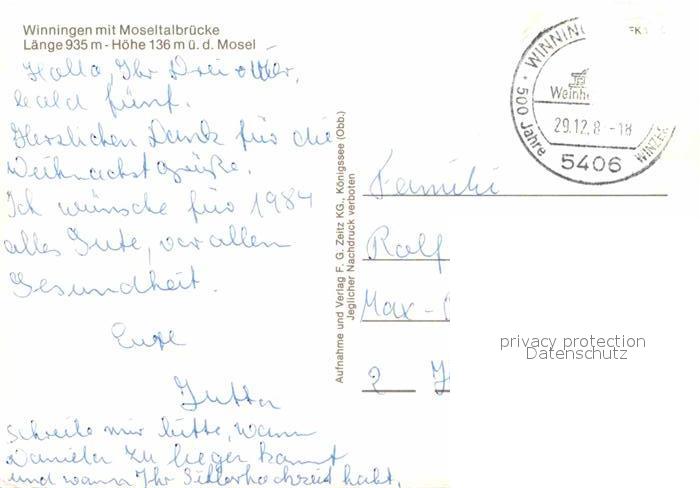 Winningen mit Moseltalbrücke
Länge 935 m - Höhe 136 m ü. d. Mosel
Hallo, Ihr Drei oder,
bald fünf.
Herzlichen Dank für die
Weihnachtsgrüße.
Ich wünsche für 1984
alles Gute, vor allem
Gesundheit.
Eure
Jutta
Schreibe mir bitte, wann
Daniela zu liegen kommt
und wann Ihr Silberhochzeit habt.
Aufnahme und Verlag F. G. Zeitz KG., Königssee (Obb.)
Jeglicher Nachdruck verboten
WINNING
Weinh
500 Jahre
29.12.8 -18
WINZER
5406
Familie
Rolf
Max-
2 H
privacy protection
Datenschutz